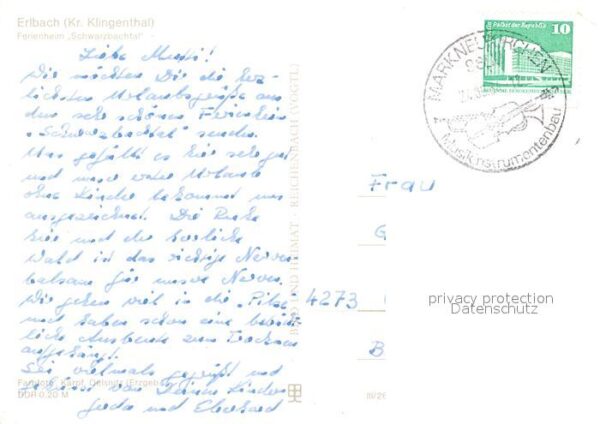 Erlbach (Kr. Klingenthal)
Ferienheim „Schwarzbachtal"
Liebe Mutti!
Wir möchten Dir die herz-
lichsten Urlaubsgrüße aus
dem sehr schönen Ferienheim
"Schwarzbachtal" senden.
Uns gefällt es hier sehr gut
und unser erster Urlaub
ohne Kinder bekommt uns
ausgezeichnet. Die Ruhe
hier und der herrliche
Wald ist das richtige Nerven
balsam für unsere Nerven.
Wir gehen viel in die „Pilze"
und haben schon eine
liche Ausbeute zum Trocknen
Sei vielmals gegrüßt und
geküsst von Deinen Kindern
Gerda und Eberhard
Farbfoto: Kärpf, Oelsnitz (Erzgeb.)
DDR 0,20 M
BILD UND HEIMAT · REICHENBACH (VOGTL)
III/26
Palast der Republik
10
MARKNEUKIRCHEN
Musikinstrumentenbau
Frau
G
4273
B
privacy protection
Datenschutz